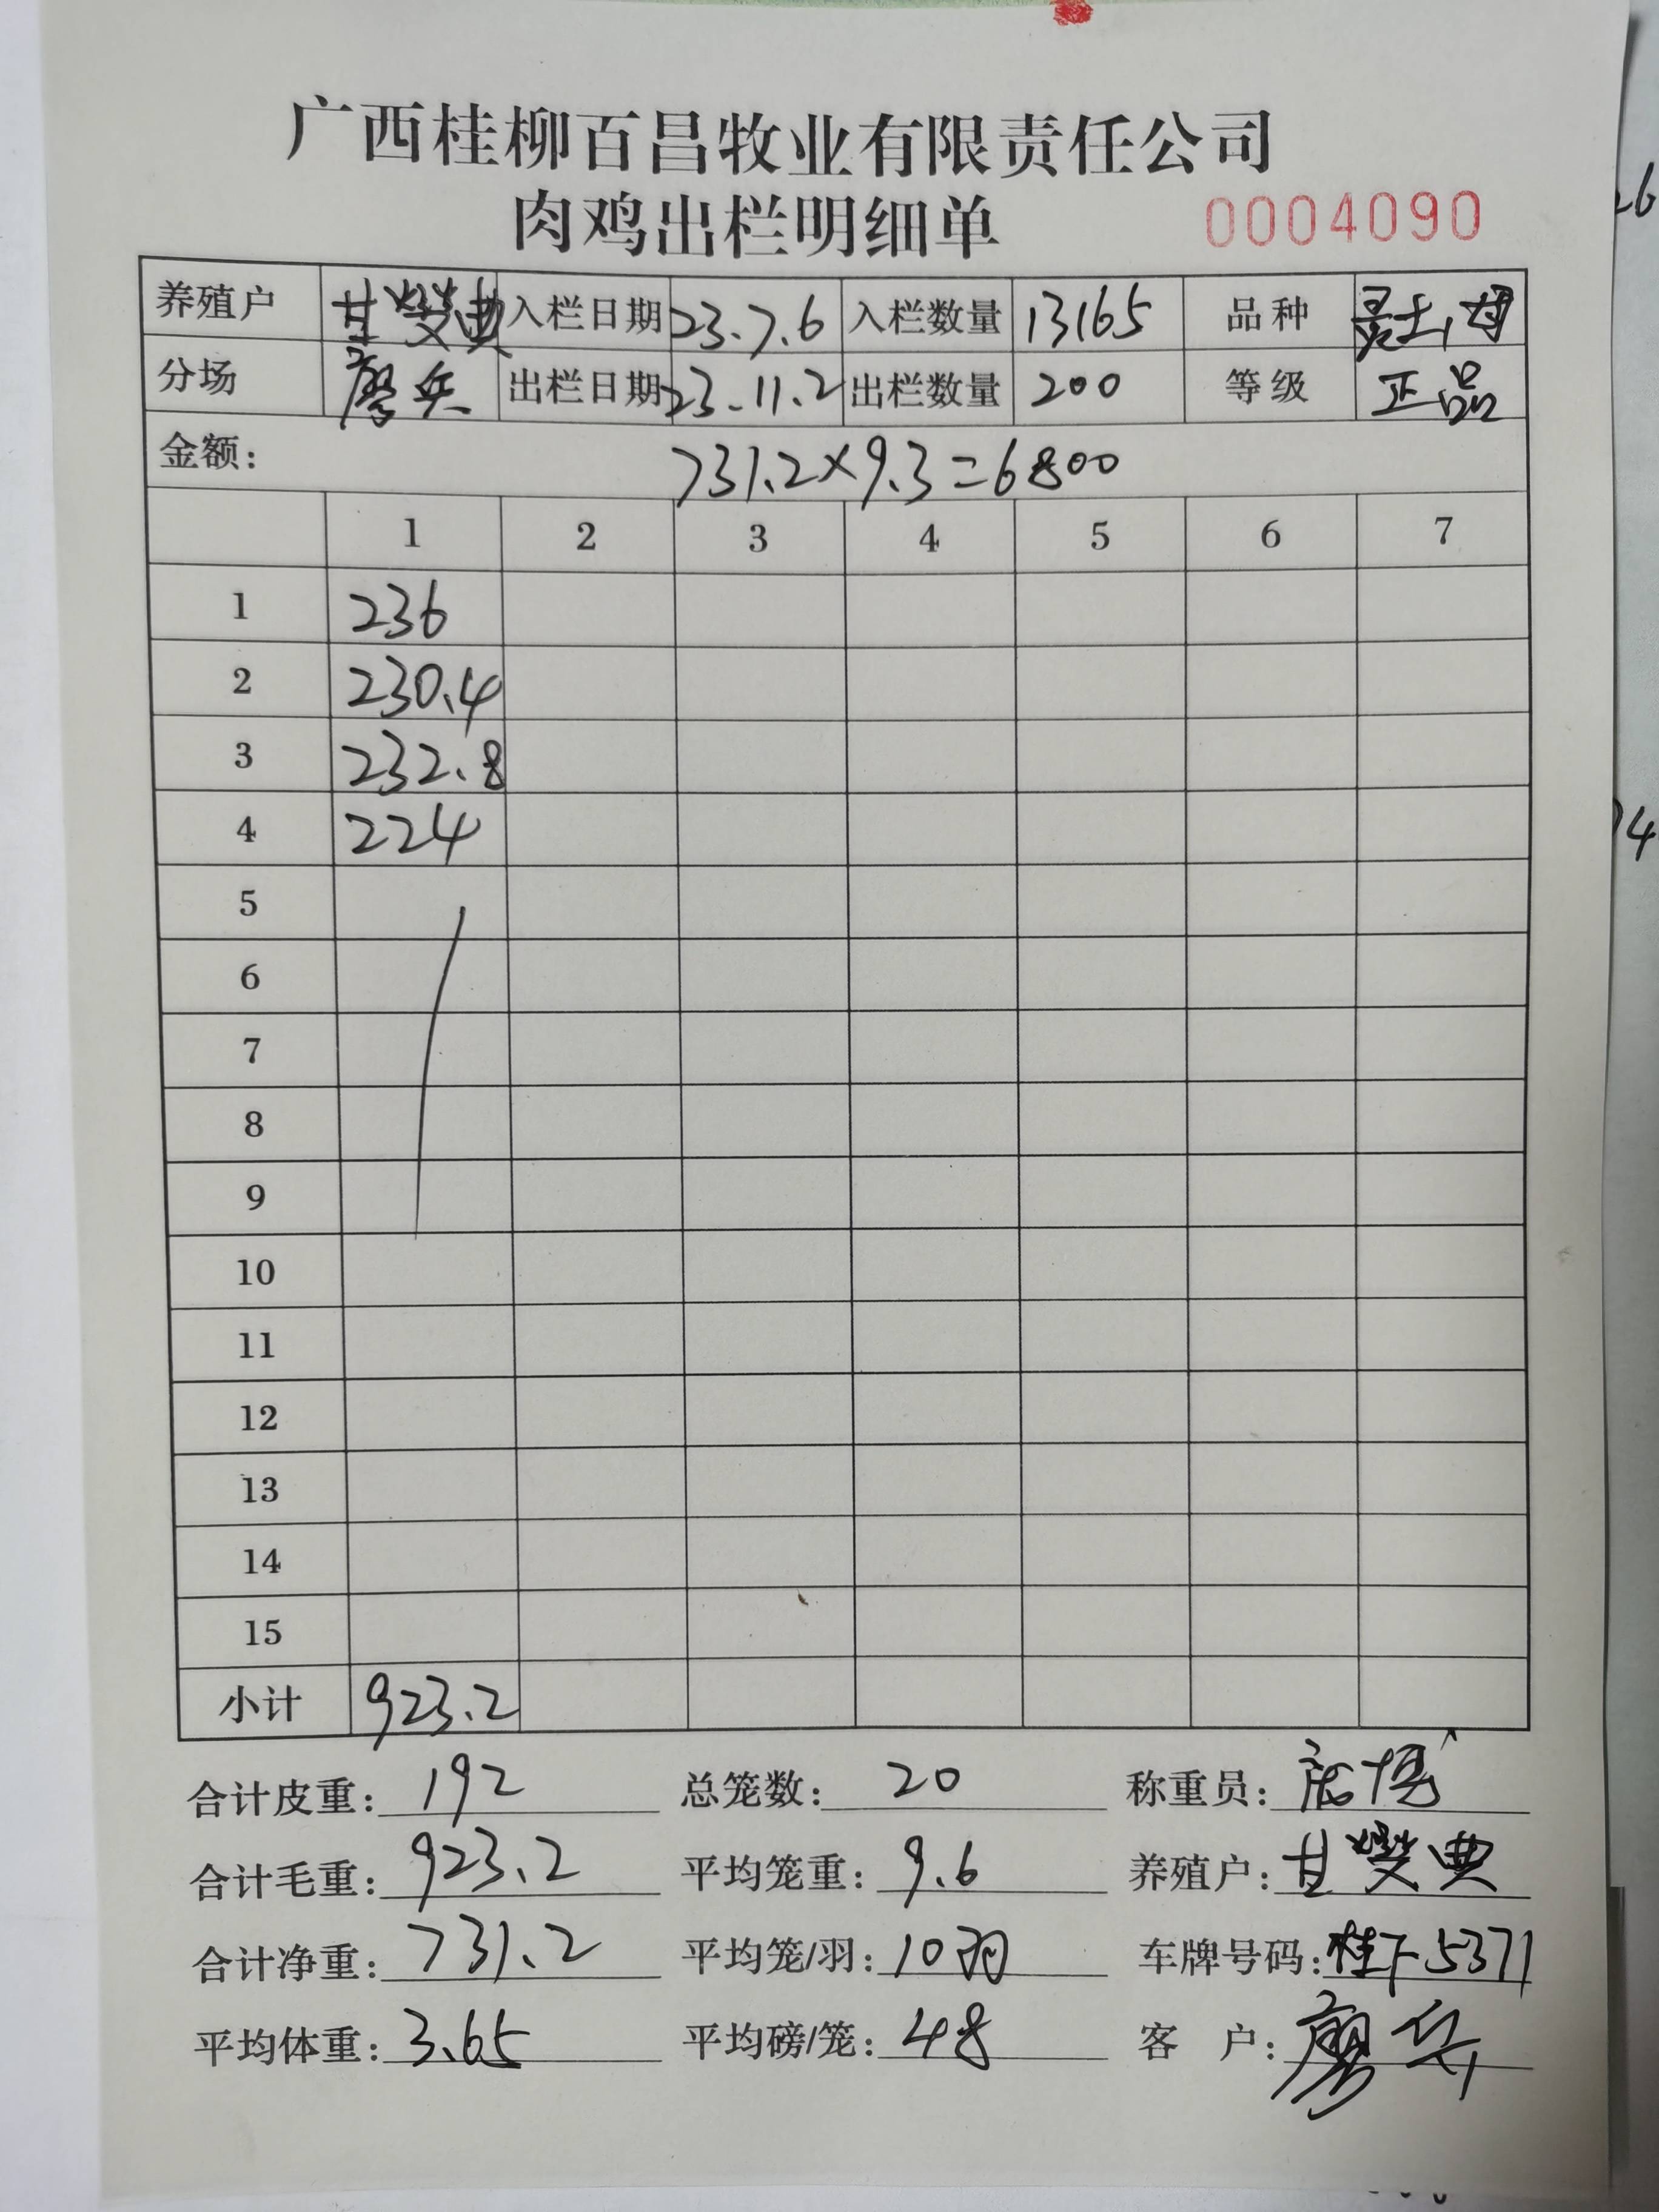 广西桂柳百昌牧业有限责任公司
肉鸡出栏明细单 0004090
养殖户 甘燮典 入栏日期 23.7.6 入栏数量 13165 品种
分场 廖兵 出栏日期 23.11.2 出栏数量 200 等级 正品
金额: 731.2×9.3=6800
1 2 3 4 5 6 7
1 236
2 230.4
3 232.8
4 224
5
6
7
8
9
10
11
12
13
14
15
小计 923.2
合计皮重: 192 总笼数: 20 称重员:
合计毛重: 923.2 平均笼重: 9.6 养殖户: 甘燮典
合计净重: 731.2 平均笼/羽: 10羽 车牌号码: 桂F5371
平均体重: 3.65 平均磅/笼: 48 客 户: 廖兵